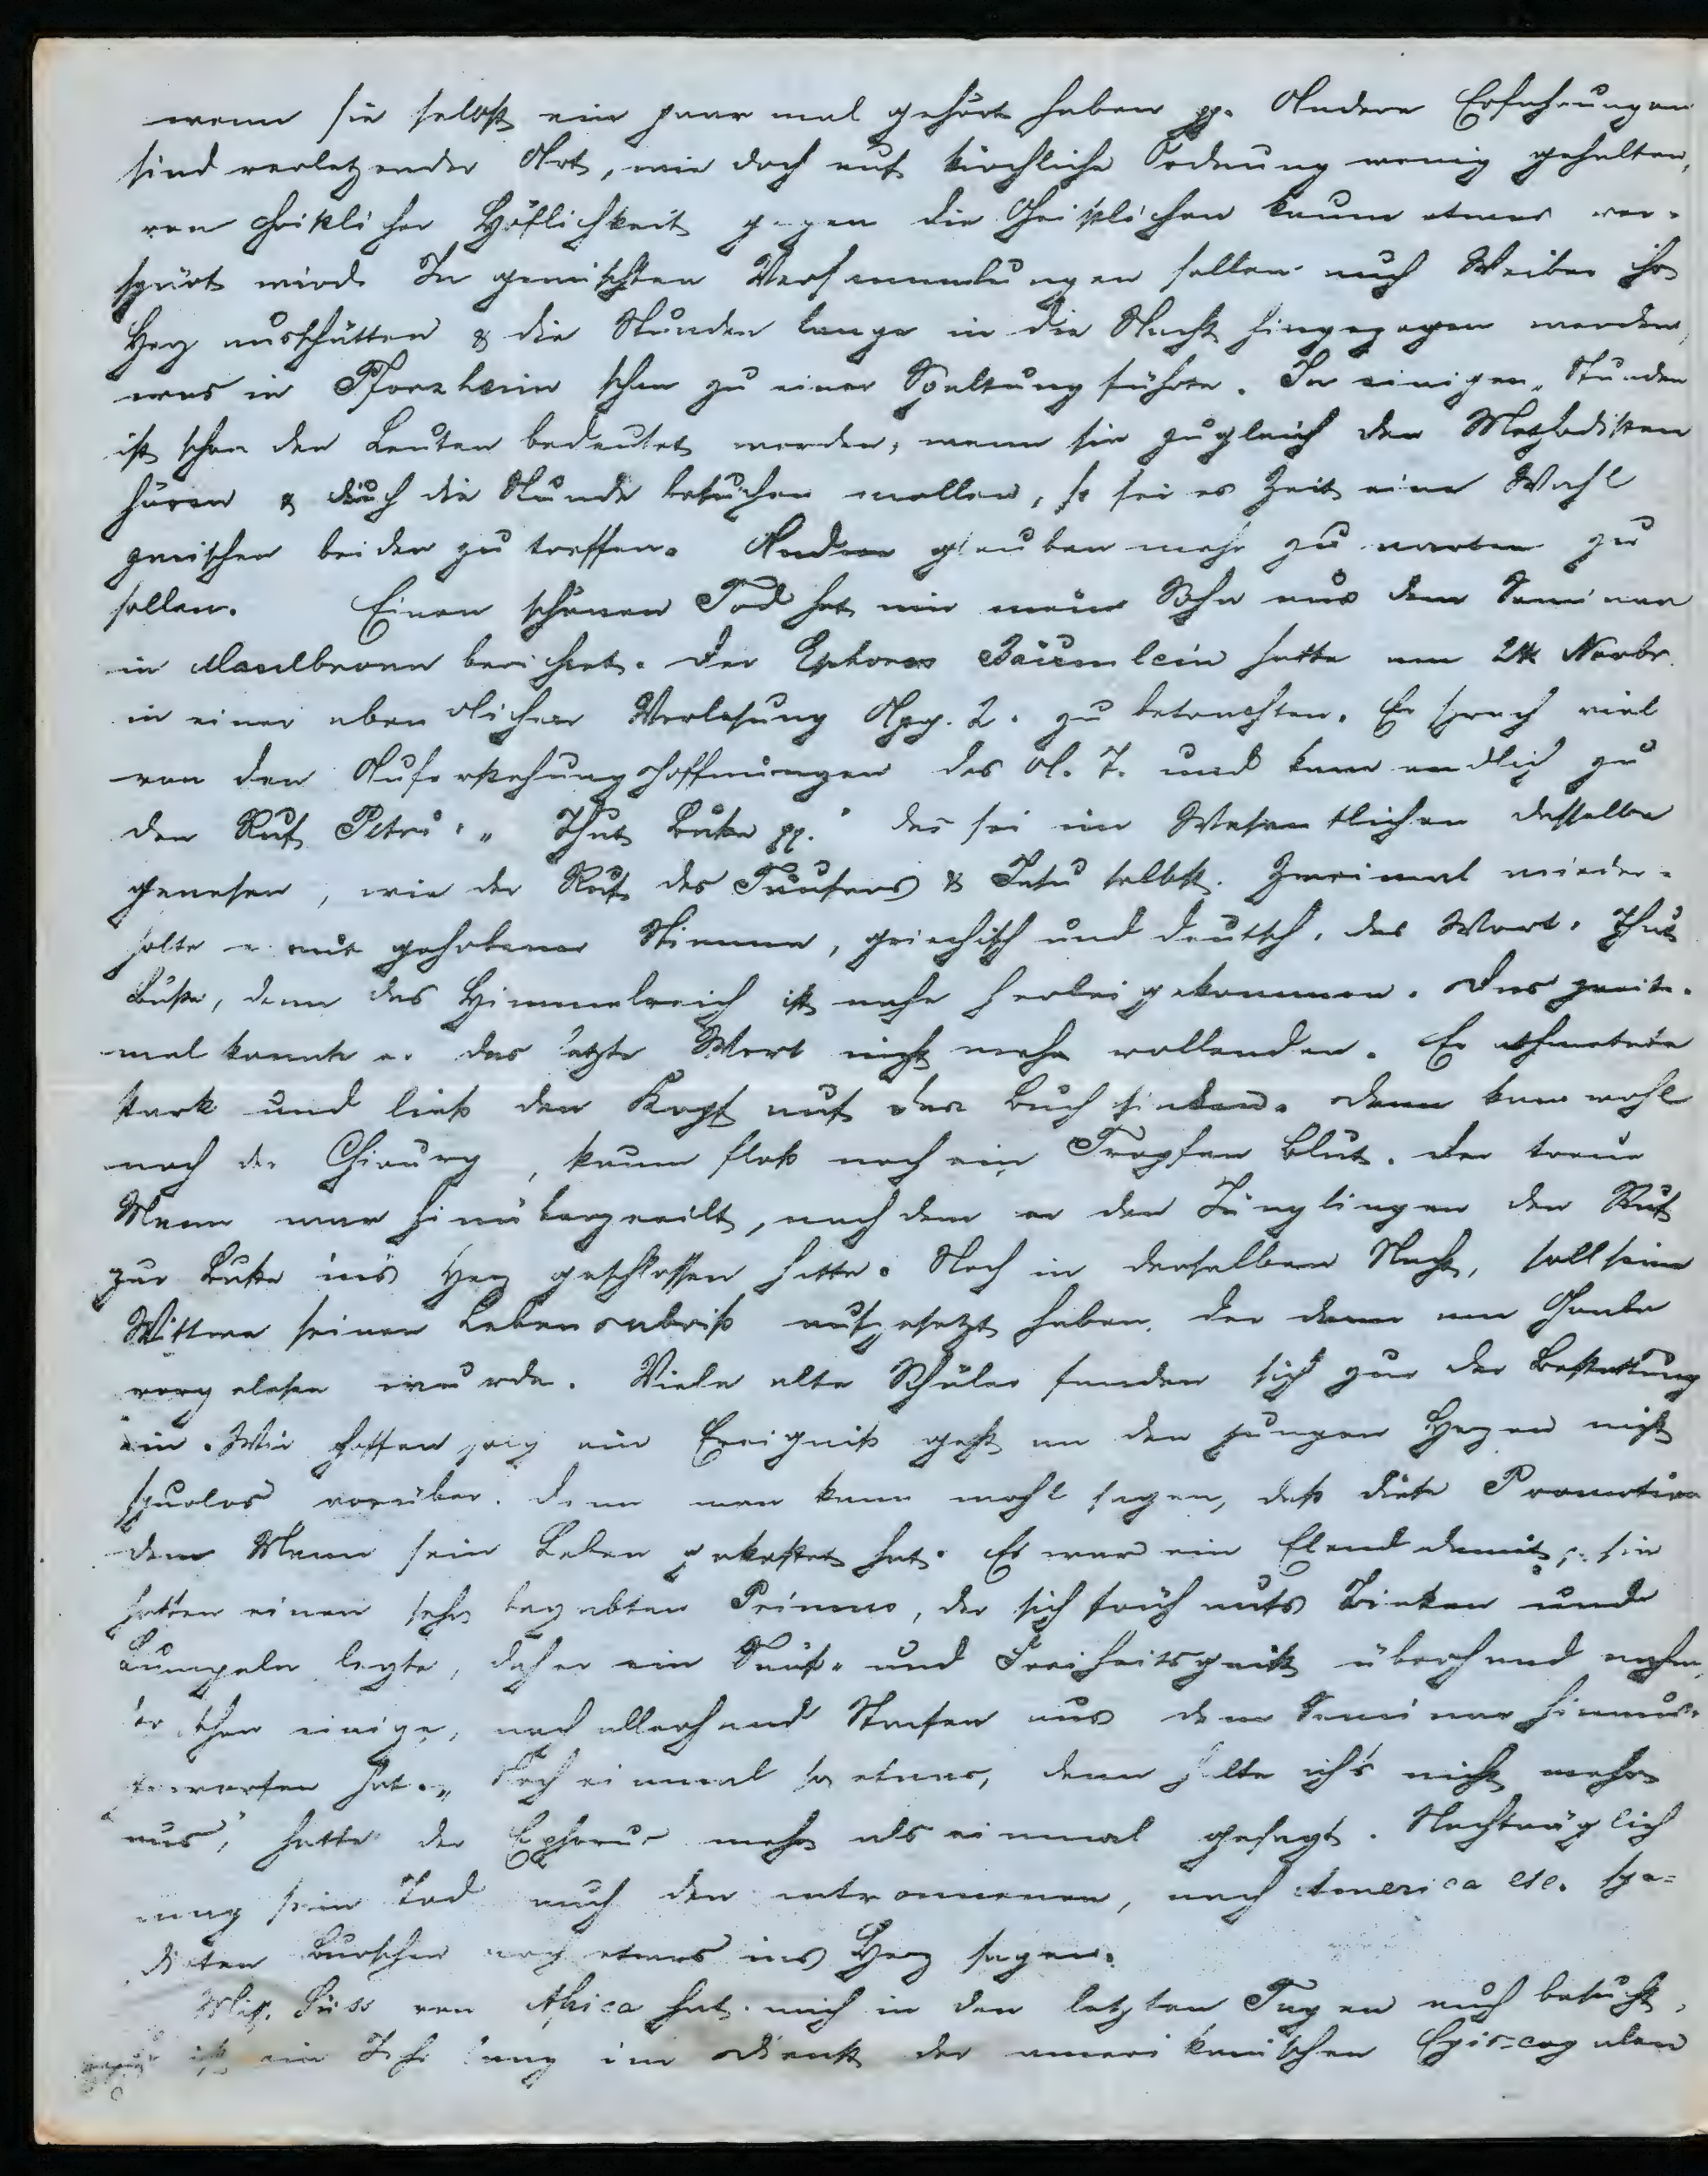 wenn sie selbst ein paar mal gehört haben pp. Andere Erfahrungen
sind verletzender Art, wie doch auf kirchliche Ordnung wenig gehalten,
von christlicher Höflichkeit gegen die Geistlichen kaum etwas ver-
spürt wird. In gemischten Versammlungen sollen auch Weiber ihr
Herz ausschütten & die Stunden lange in die Nacht hingezogen werden,
was in Pforzheim schon zu einer Spaltung führte. In einigen Stunden
ist schon den Leuten bedeutet worden, wenn sie zugleich den Methodisten
hören & auch die Stunde besuchen wollen, so sei es Zeit eine Wahl
zwischen beiden zu treffen. Andere glauben mehr zu warten zu
sollen. Einen schönen Tod hat mir mein Sohn aus dem Seminar
in Maulbronn berichtet. Der Ephorus Bäumlein hatte am 24 Novbr.
in einer abendlichen Vorlesung Apg. 2. zu betrachten. Er sprach viel
von den Auferstehungshoffnungen des A. T. und kam endlich zu
dem Ruf Petri: „Thut Buße pp." das sei im Wesentlichen derselbe
gewesen, wie der Ruf des Täufers & Jesu selbst. Zweimal wieder-
holte er mit gehobener Stimme, griechisch und deutsch, das Wort: Thut
Buße, denn das Himmelreich ist nahe herbeigekommen. Das zweite-
mal konnte er das letzte Wort nicht mehr vollenden. Er athmete
stark und ließ den Kopf auf das Buch sinken. Dann kam wohl
noch der Chirurg, kaum floß noch ein Tropfen Blut. Der treue
Mann war hinübergeeilt, nachdem er den Jünglingen den Ruf
zur Buße ins Herz geschlossen hatte. Noch in derselben Nacht, soll seine
Wittwe seinen Lebensabriß aufgesetzt haben, der dann am Grabe
vorgelesen wurde. Viele alte Schüler fanden sich zur der Bestattung
ein. Wir hoffen solch ein Ereigniß geht an den jungen Herzen nicht
spurlos vorüber. Denn man kann wohl sagen, daß diese Promotion
dem Mann sein Leben gekostet hat. Es war ein Elend damit, sie
hatten einen sehr begabten Primus, der sich früh aufs Trinken und
Lumpeln legte, daher ein Sauf- und Freiheitsgeist überhand nahm,
der schon einige, nach allerhand Strafen aus dem Seminar hinaus-
geworfen hat. „Noch einmal so etwas, dann halte ich's nicht mehr
aus", hatte der Ephorus mehr als einmal gesagt. Nachträglich
mag sein Tod auch den entronnenen, nach America etc. spe-
dirten Burschen noch etwas ins Herz sagen.
Miss. Süss von Africa hat mich in den letzten Tagen auch besucht,
ist ein Jahr lang im Dienst der amerikanischen Episcopalen